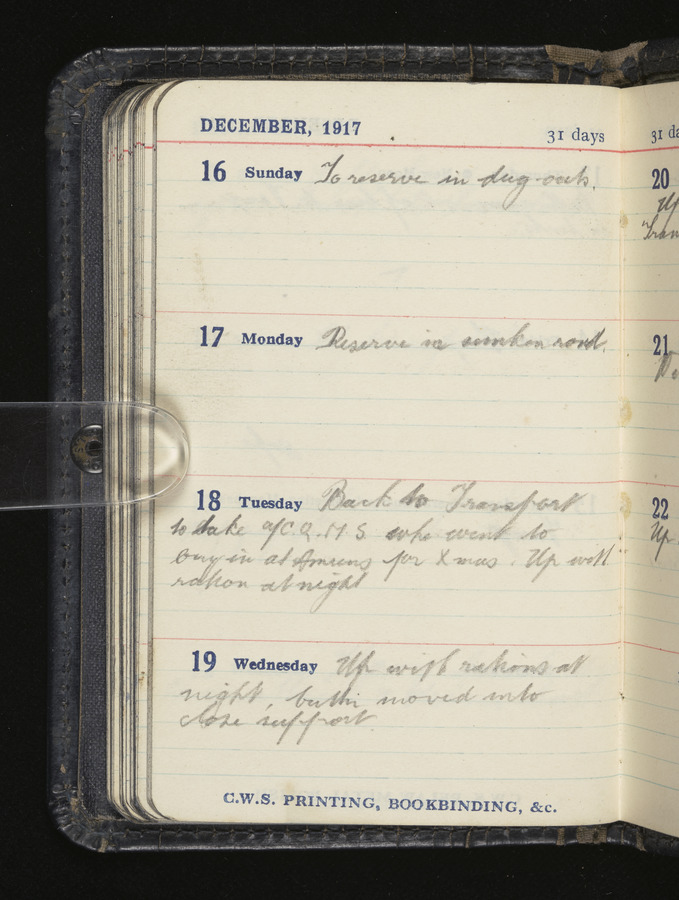 DECEMBER, 1917
31 days
16 Sunday To reserve in dug-outs.
17 Monday Reserve in sunken road.
18 Tuesday Back to Transport
to take a/C.Q.M.S. who went to
buy in at Amiens for Xmas. Up with
ration at night
19 Wednesday Up with rations at
night, moved into
close support.
C.W.S. PRINTING, BOOKBINDING, &c.
31 da
20
Up
Tran
21
22
Up